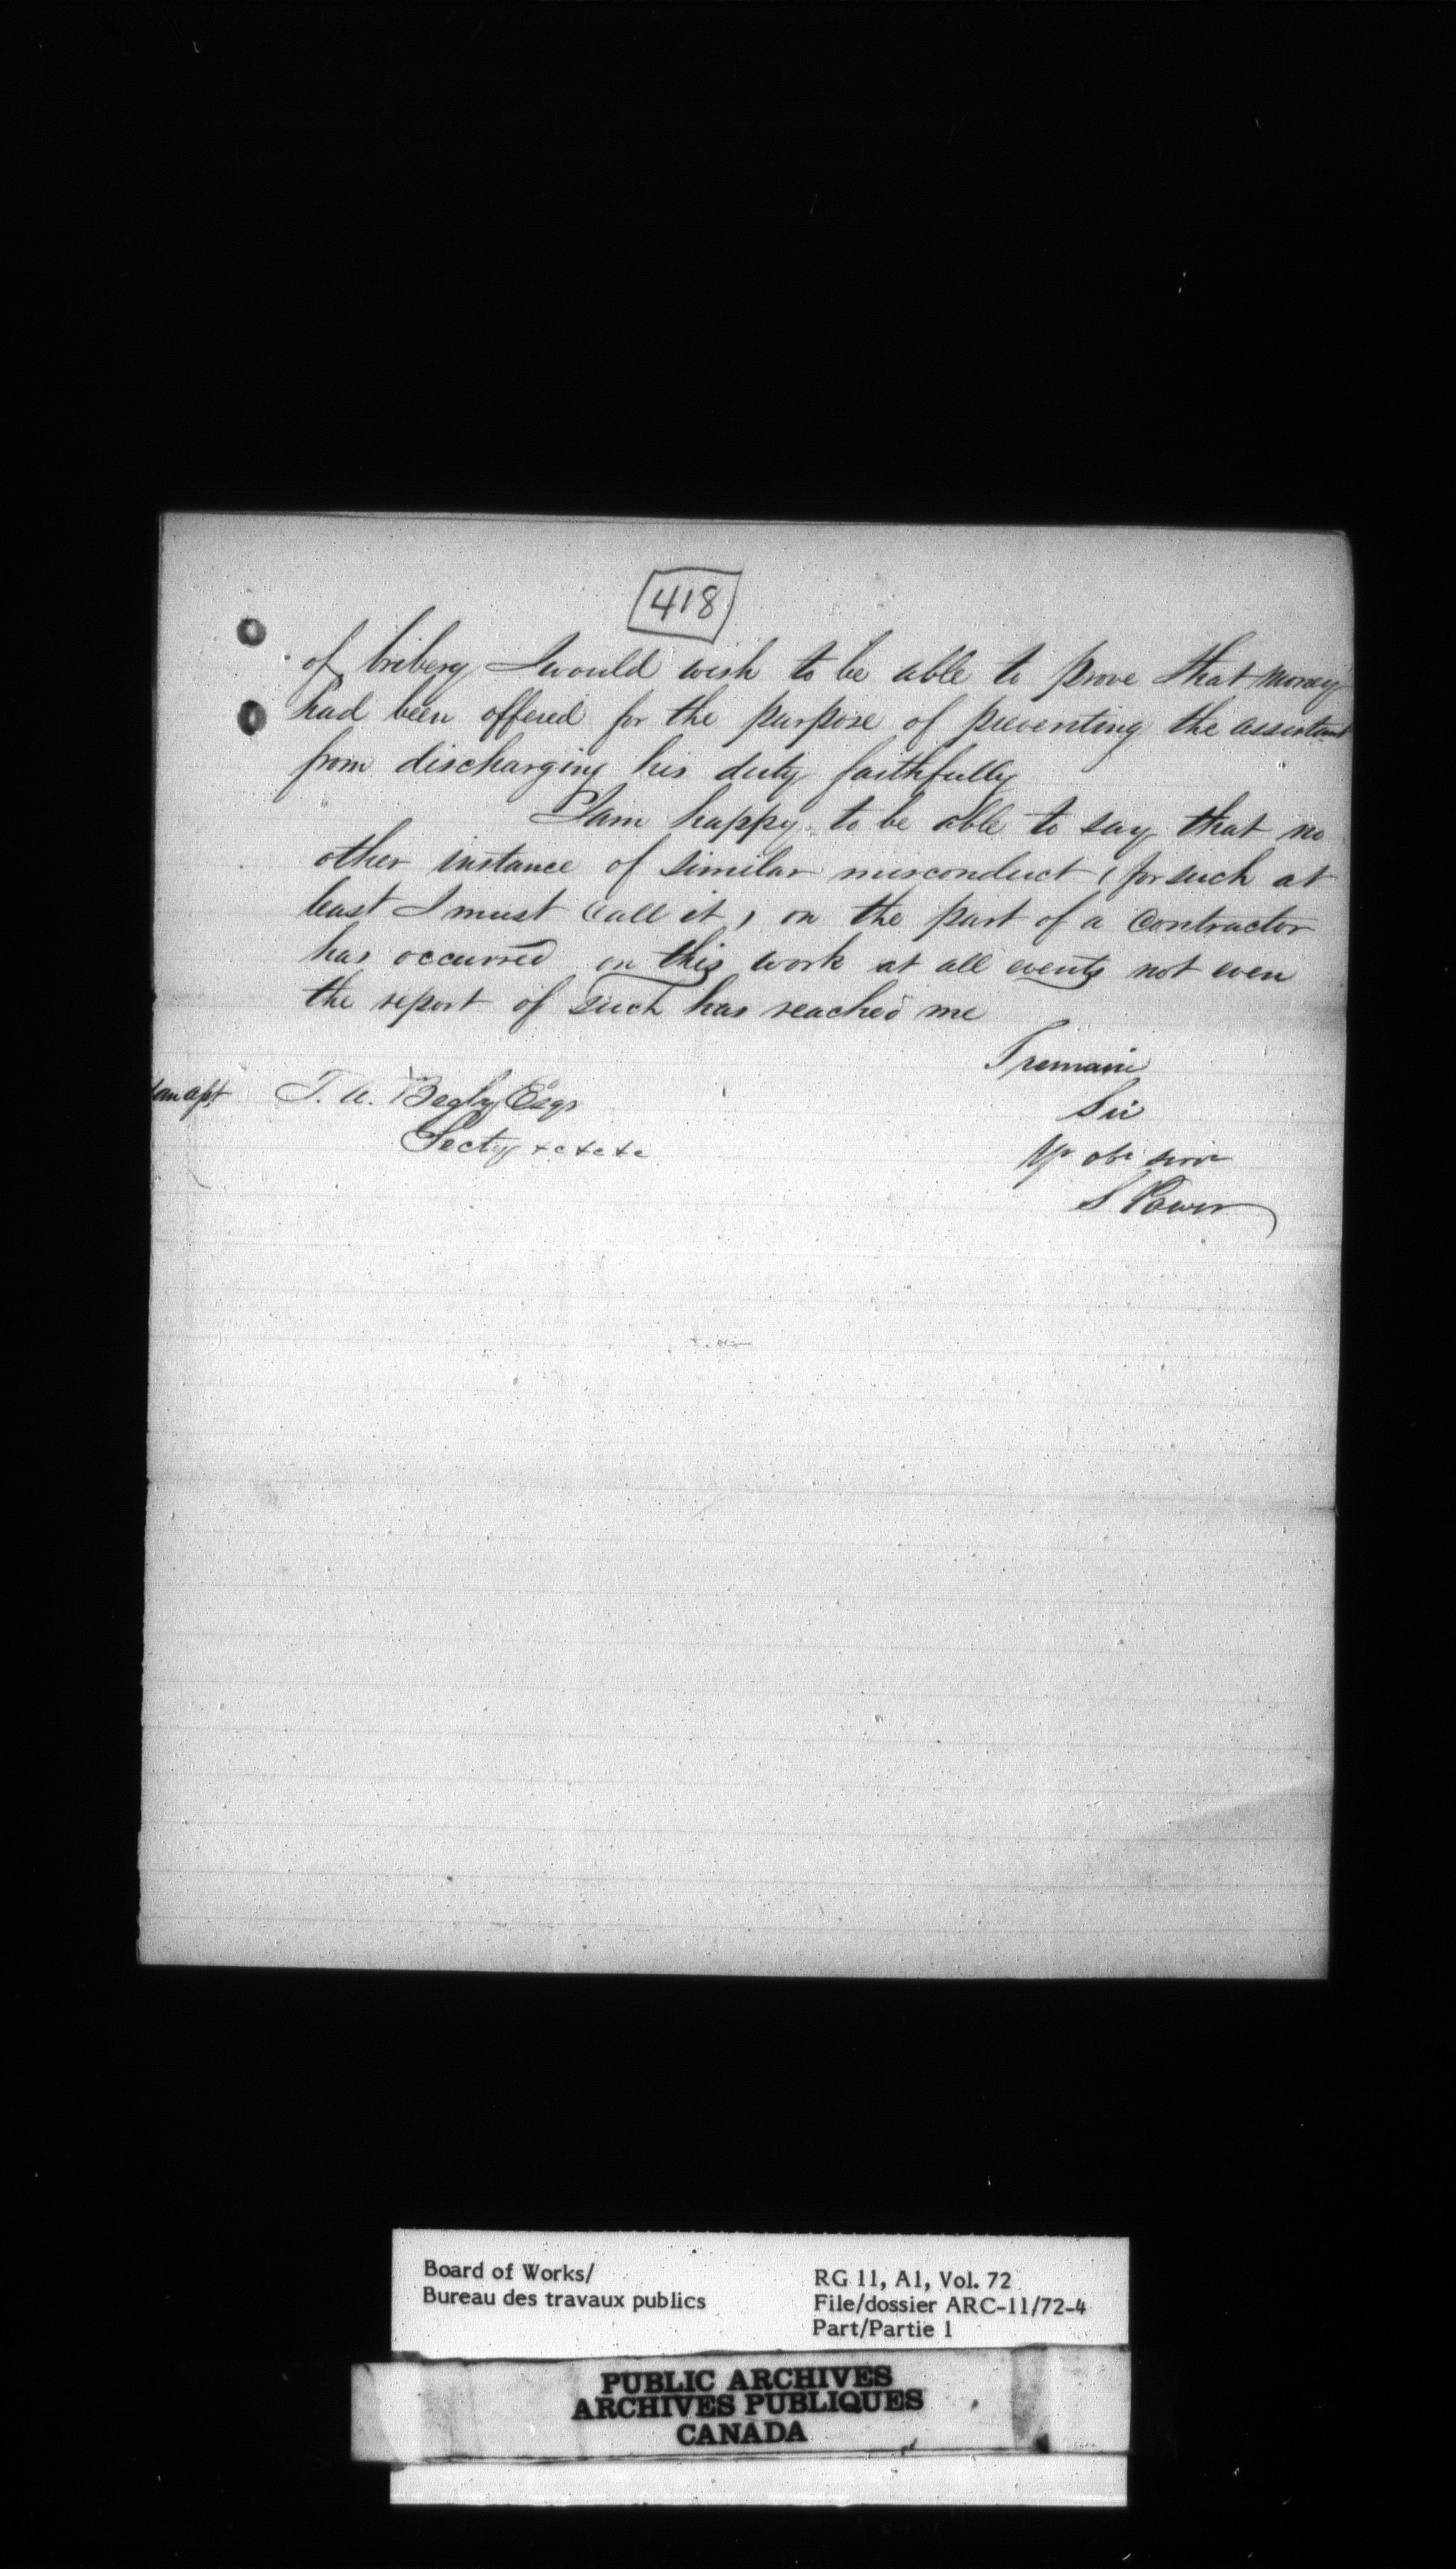 418
of bribery I would wish to be able to prove that money
had been offered for the purpose of preventing the assistant
from discharging his duty faithfully
I am happy to be able to say that no
other instance of similar misconduct (for such at
least I must call it) on the part of a Contractor
has occurred on this work at all events not even
the report of such has reached me
I remain
Sir
T. A. Begly Esqr
Yr obt servt
Secty &c &c &c
S Power
Board of Works/
Bureau des travaux publics
RG 11, A1, Vol. 72
File/dossier ARC-11/72-4
Part/Partie 1
PUBLIC ARCHIVES
ARCHIVES PUBLIQUES
CANADA